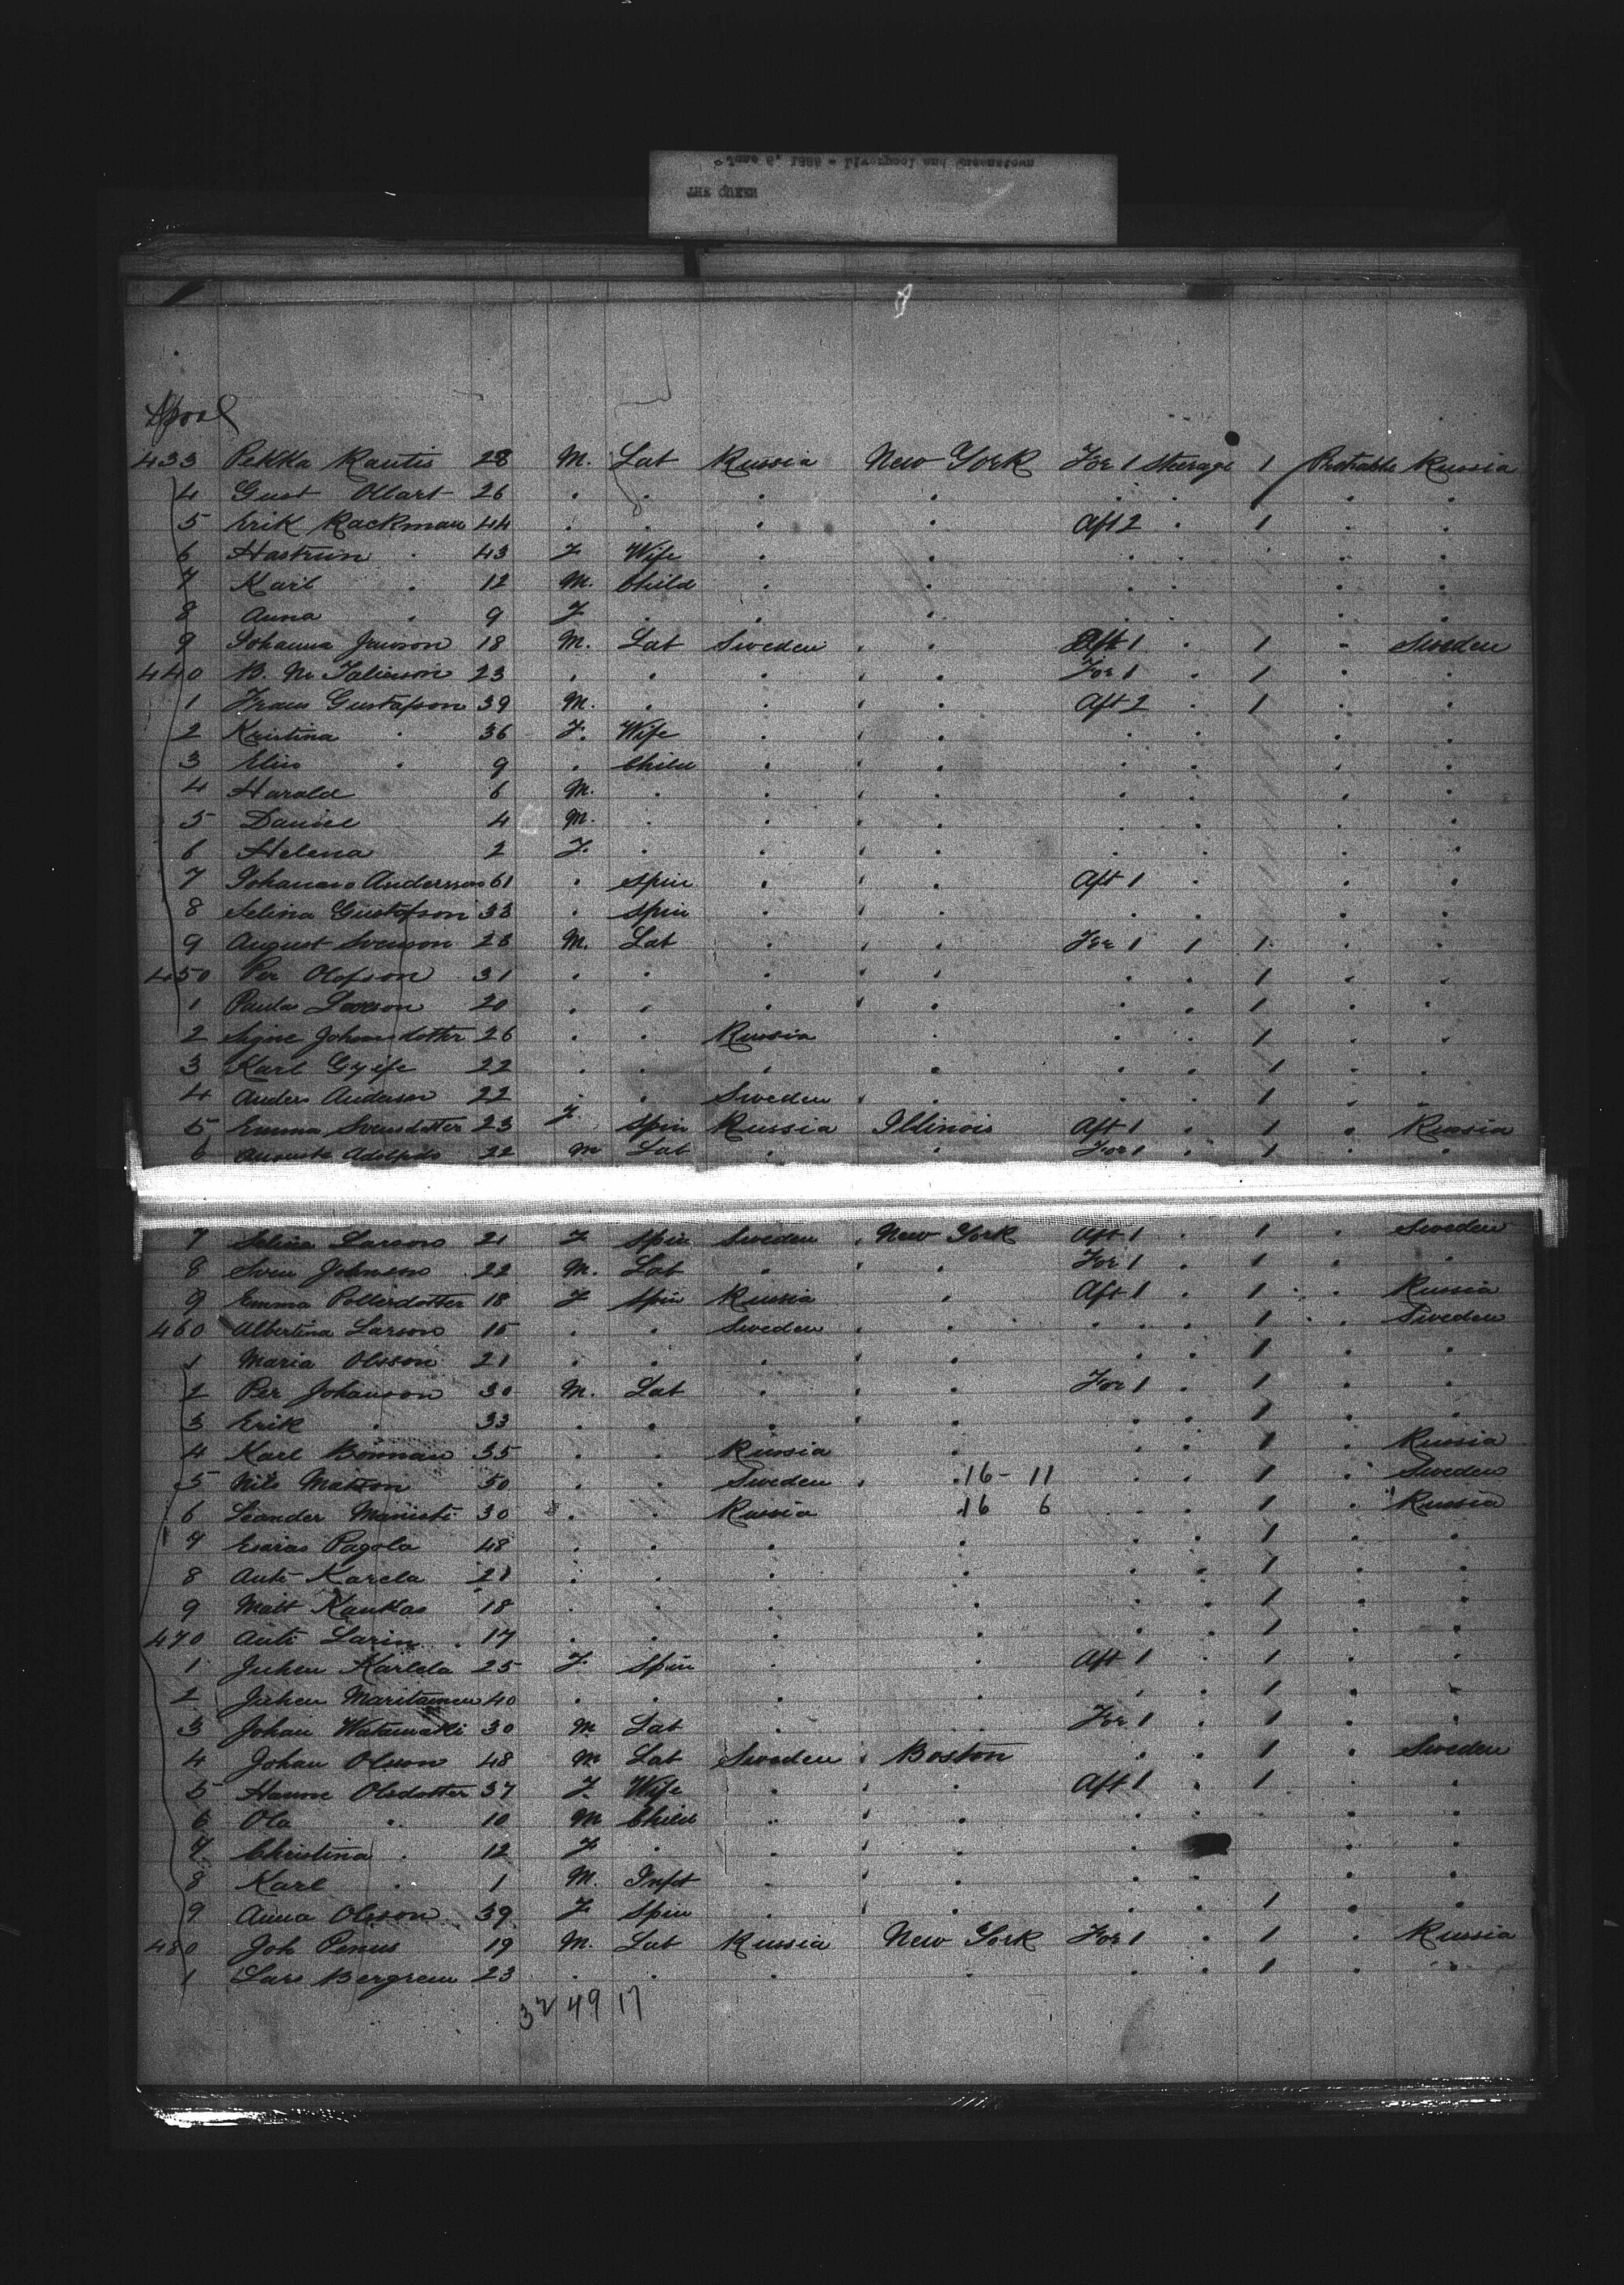 June 6, 1888 - Liverpool and Queenstown
THE QUEEN
Lpool
433 Pekka Rautis 28 M. Lab Russia New York For 1 Steerage 1 Protrable Russia
4 Gust Ollart 26 . . . . . . . .
5 Erik Rackman 44 . . . . Aft 2 . 1 . .
6 Hastrun . 43 F Wife . . . . . .
7 Karl . 12 M. Child . . . . . .
8 Anna . 9 F . . . . . . .
9 Johanna Jamson 18 M. Lab Sweden . . Aft 1 . 1 - Sweden
440 23 . . . . . For 1 . 1 . .
1 Frans Gustafson 39 M. . . . . Aft 2 . 1 . .
2 Kristina . 36 F. Wife . . . . . . .
3 Elin . 9 . Child . . . . . . .
4 Harald 6 M. . . . . . . . .
5 Daniel 4 M. . . . . . . . .
6 Helena 2 F. . . . . . . . .
7 Johanna Andersson 61 . Spin . . . Aft 1 . . .
8 Selina Gustafson 33 . Spin . . . . . . .
9 August Svenson 28 M. Lab . . . For 1 1 1 . .
450 Per Olofson 31 . . . . . . . 1 . .
1 Paula 20 . . . . . . . 1 . .
2 Signe Johansdotter 26 . . Russia . . . 1 . .
3 Karl 22 . . . . . . 1 . .
4 Anders Anderson 22 . . Sweden . . . 1 . .
5 Emma Svensdotter 23 F Spin Russia Illinois Aft 1 . 1 . Russia
6 22 M Lab . . For 1 . 1 . .
7 Selina Larson 21 F Spin Sweden . New York Aft 1 . 1 . Sweden
8 Sven Johnson 22 M. Lab . . . For 1 . 1 . .
9 Emma 18 F Spin Russia . Aft 1 . 1 . Russia
460 Albertina Larson 15 . . Sweden . . . . 1 . Sweden
1 Maria Olsson 21 . . . . . . . 1 . .
2 Per Johanson 30 M. Lab . . . For 1 . 1 . .
3 Erik . 33 . . . . . . . 1 . .
4 Karl Bonnan 35 . . Russia . . . 1 . Russia
5 Nils Matson 50 . . Sweden . . 16 - 11 . . 1 . Sweden
6 Leander 30 . . Russia 16 6 . . 1 . Russia
7 Esaias Pagola 48 . . . . . . 1 . .
8 Anti Karela 21 . . . . . . 1 . .
9 Matt Kaukas 18 . . . . . . 1 . .
470 Anti Larin 17 . . . . . . 1 . .
1 Juhen Karlela 25 F Spin . . Aft 1 . 1 . .
2 Juhen 40 . . . . . . 1 . .
3 Johan 30 M Lab . . For 1 . 1 . .
4 Johan Olsson 48 M Lab Sweden . Boston . . 1 . Sweden
5 Hanne Olsdotter 37 F. Wife . . . Aft 1 . 1 . .
6 Ola . 10 M Child . . . . . . .
7 Christina . 12 F . . . . . . .
8 Karl . 1 M. Infct . . . . . . .
9 Anna Olsson 39 F Spin . . . . . 1 . .
480 Joh Penus 19 M. Lab Russia New York For 1 . 1 . Russia
1 Lars Bergren 23 . . . . . . 1 . .
32 49 17